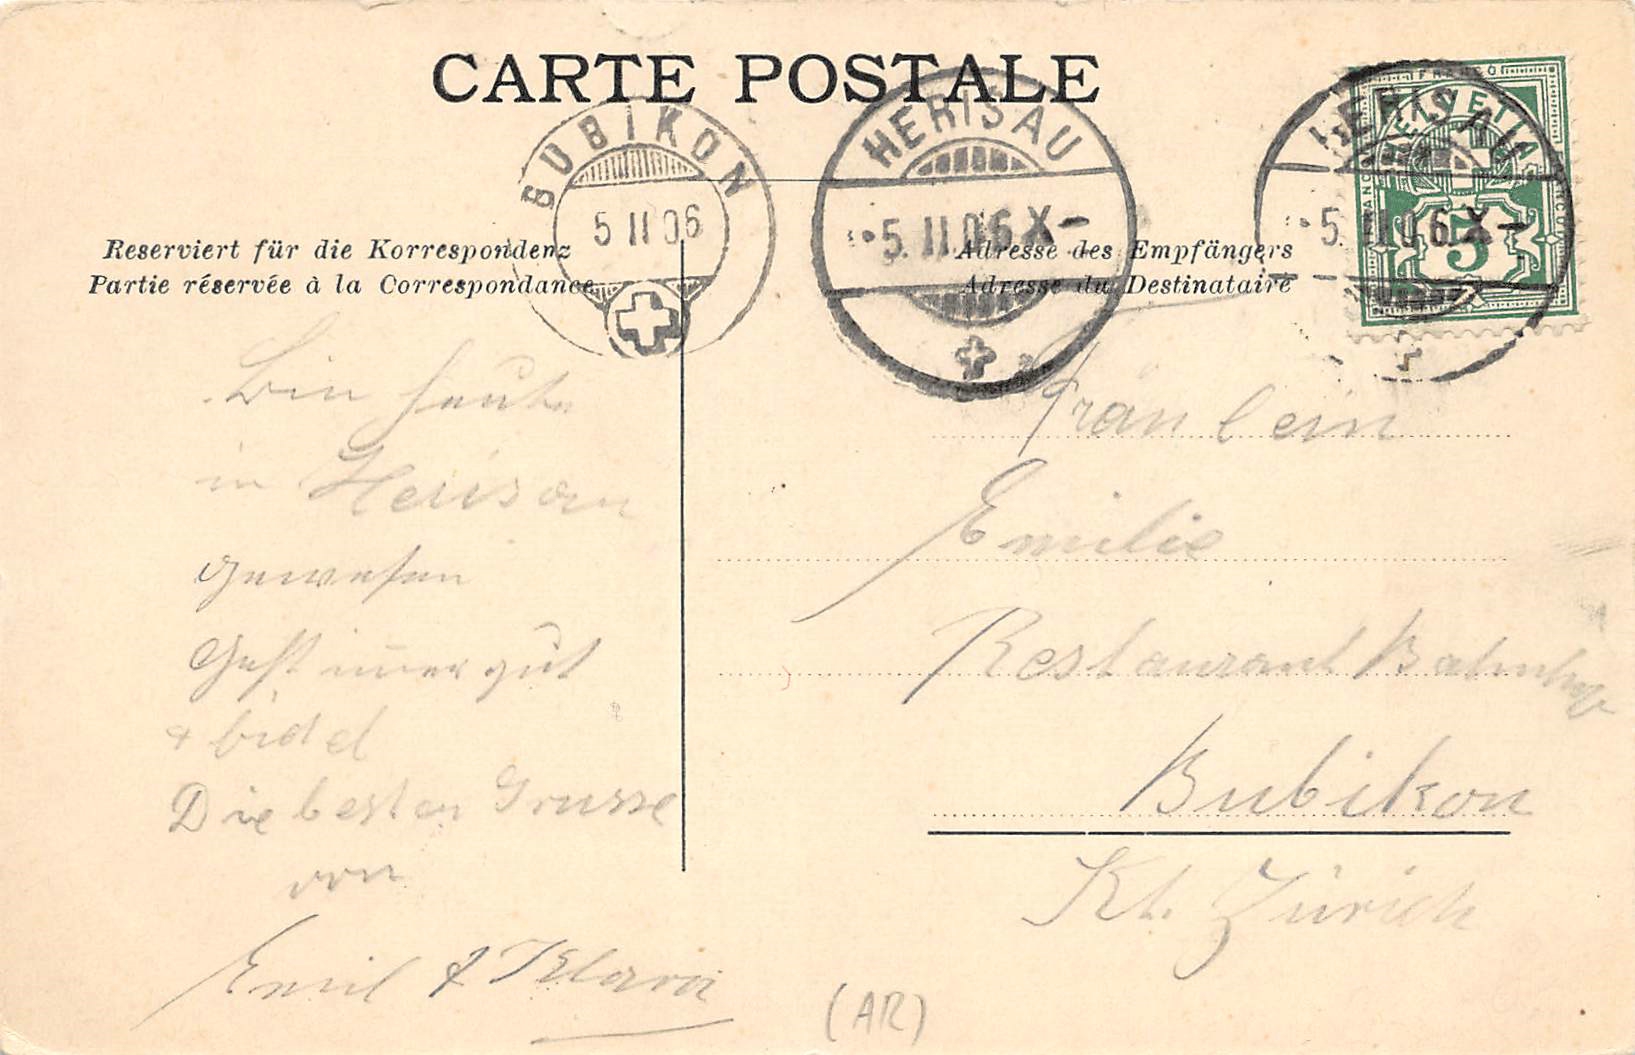 CARTE POSTALE
BUBIKON
5 II 06
HERISAU
5. II. 06 X-
HERISAU
5. II. 06 X-
FRANCO
HELVETIA
5
Reserviert für die Korrespondenz
Partie réservée à la Correspondance
Adresse des Empfängers
Adresse du Destinataire
Bin heute
in Herisau
gewesen
Geht imer gut
+ fidel
Die besten Grusse
von
Emil & Klara
Fräulein
Emilie
Restaurant Bahnhof
Bubikon
Kt. Zürich
(AR)